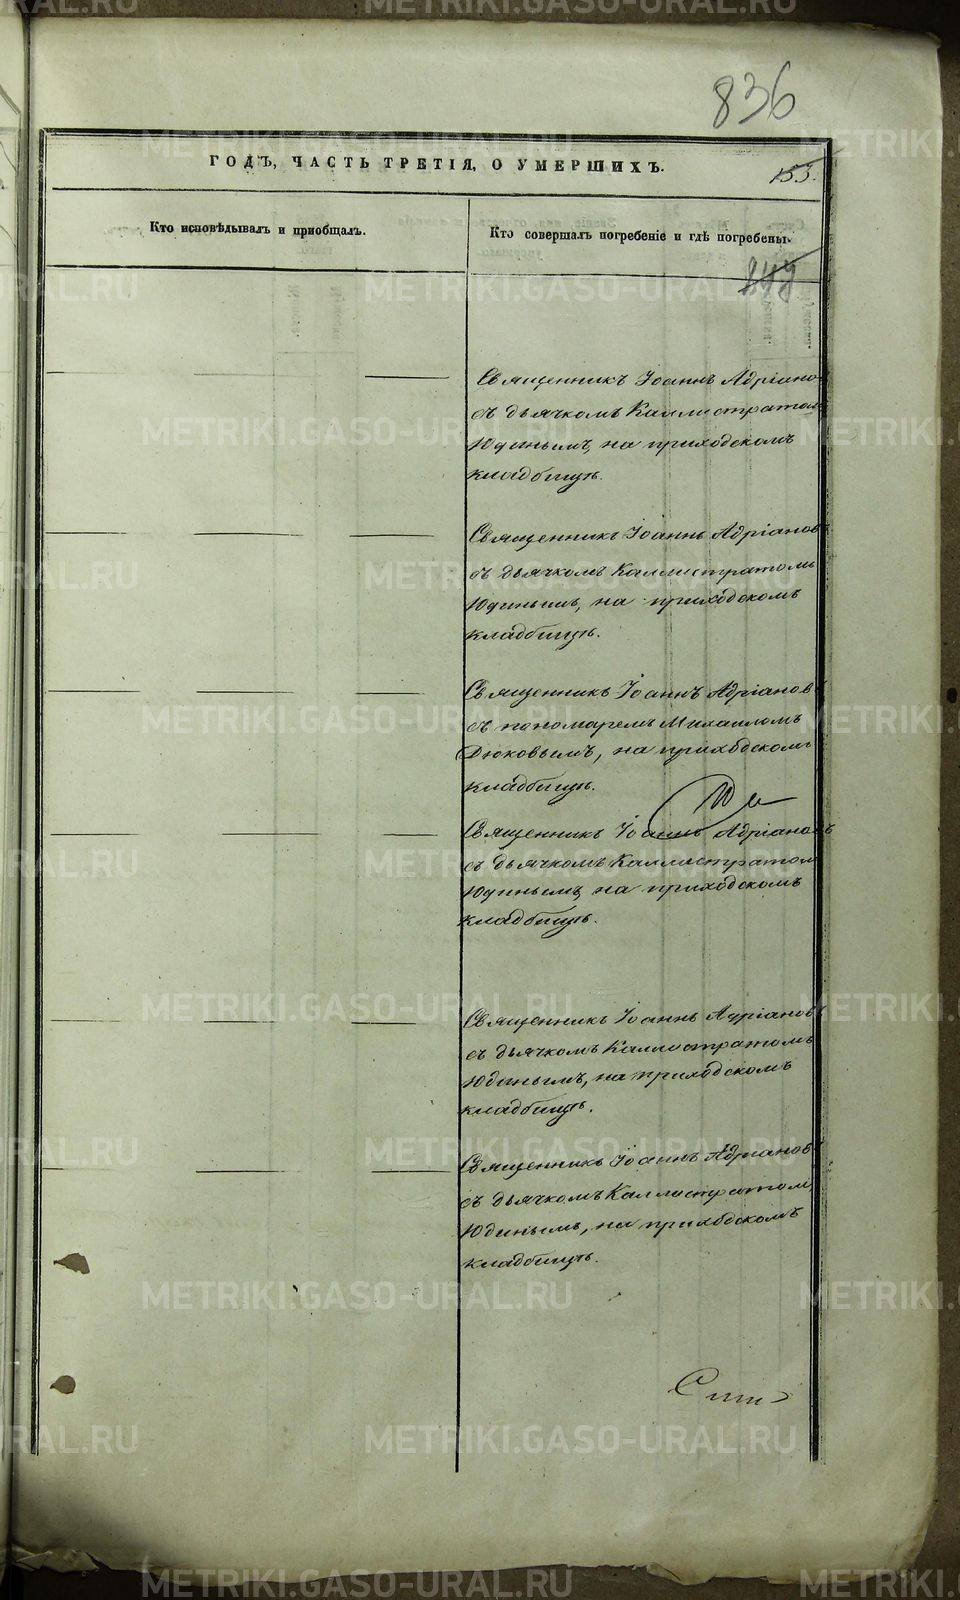 836
ГОДЪ, ЧАСТЬ ТРЕТІЯ, О УМЕРШИХЪ.
153.
Кто исповѣдывалъ и пріобщалъ.
Кто совершалъ погребеніе и гдѣ погребены.
Священникъ Іоаннъ Адріанов
съ дьячкомъ Каллистратом
Юдинымъ, на приходскомъ
кладбищѣ.
Священникъ Іоаннъ Адріановъ
съ дьячкомъ Каллистратомъ
Юдинымъ, на приходскомъ
кладбищѣ.
Священникъ Іоаннъ Адріановъ
съ пономаремъ Михаиломъ
Дюковымъ, на приходскомъ
кладбищѣ.
Священникъ Іоаннъ Адріановъ
съ дьячкомъ Каллистратом
Юдинымъ, на приходскомъ
кладбищѣ.
Священникъ Іоаннъ Адріановъ
съ дьячкомъ Каллистратомъ
Юдинымъ, на приходскомъ
кладбищѣ.
Священникъ Іоаннъ Адріановъ
съ дьячкомъ Каллистратом
Юдинымъ, на приходскомъ
кладбищѣ.
METRIKI.GASO-URAL.RU